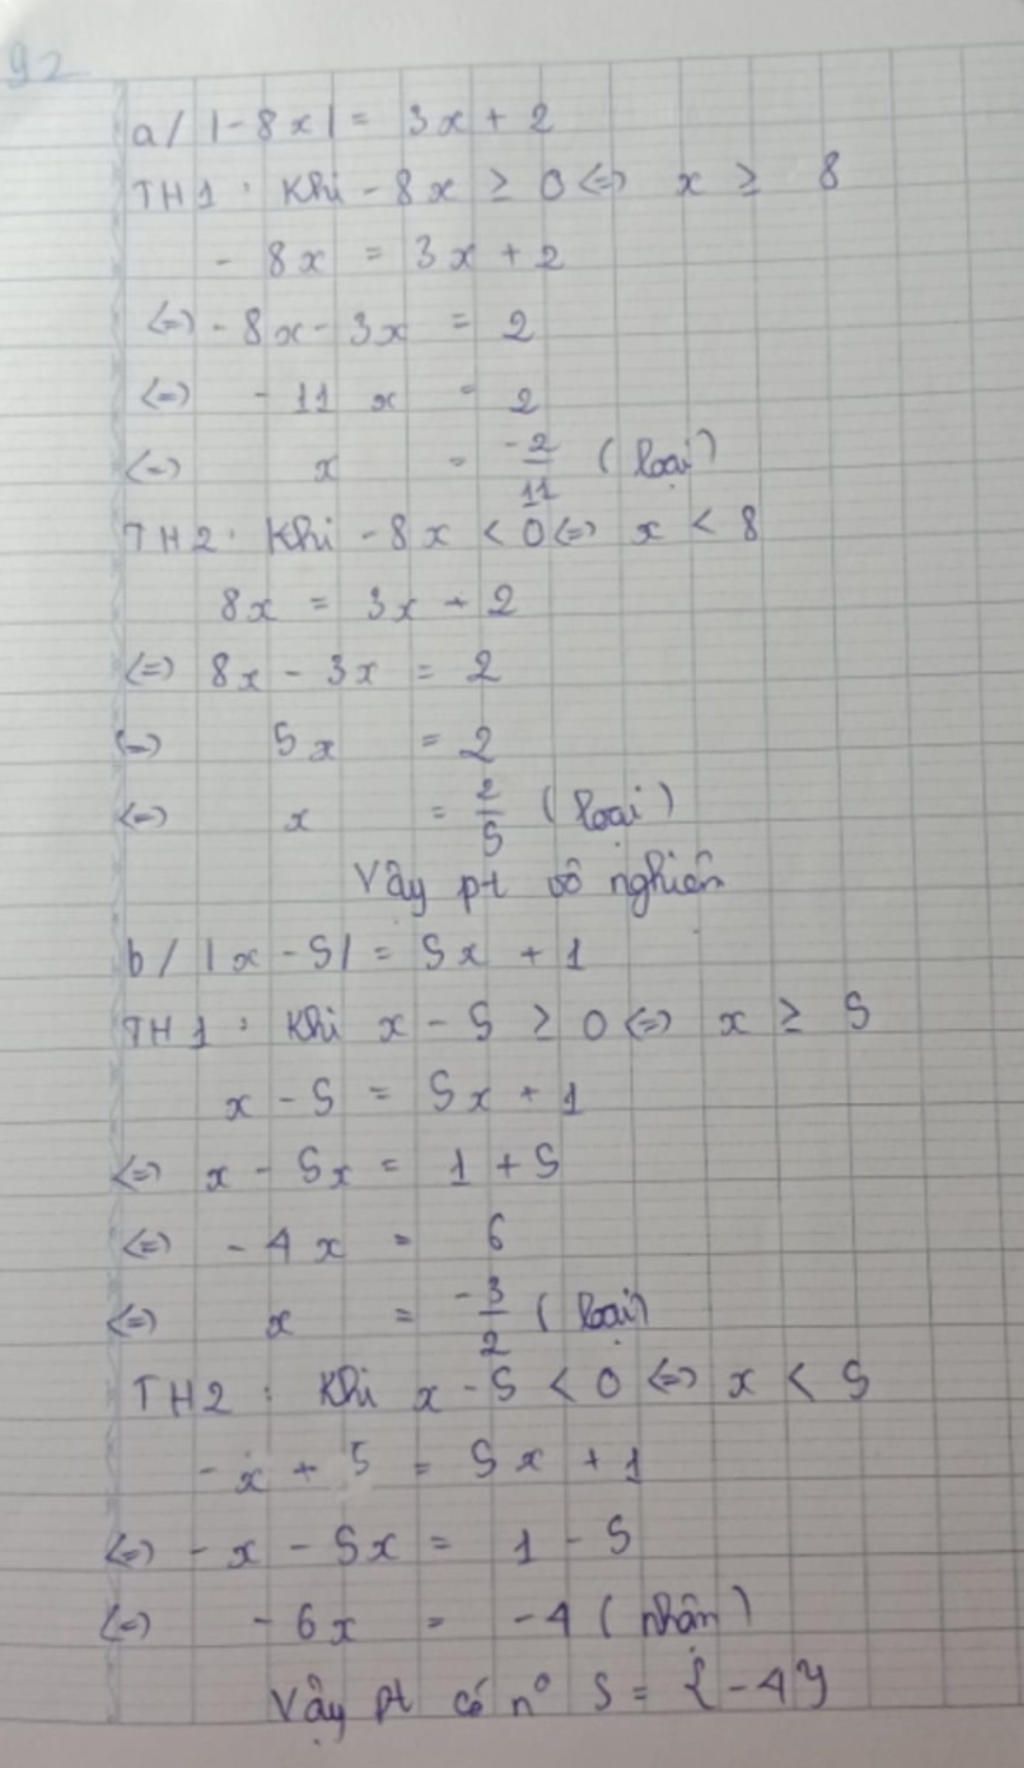 92
a/ |-8x| = 3x + 2
TH1: Khi -8x ≥ 0 <=> x ≥ 8
- 8x = 3x + 2
<=> - 8x - 3x = 2
<=> - 11x = 2
<=> x = -2/11 (loại)
TH2: Khi -8x < 0 <=> x < 8
8x = 3x + 2
<=> 8x - 3x = 2
<=> 5x = 2
<=> x = 2/5 (loại)
Vậy pt vô nghiện
b/ |x - 5| = 5x + 1
TH1: Khi x - 5 ≥ 0 <=> x ≥ 5
x - 5 = 5x + 1
<=> x - 5x = 1 + 5
<=> - 4x = 6
<=> x = -3/2 (loại)
TH2: Khi x - 5 < 0 <=> x < 5
- x + 5 = 5x + 1
<=> - x - 5x = 1 - 5
<=> - 6x = -4 (nhận)
Vậy pt có nº S = {-4}